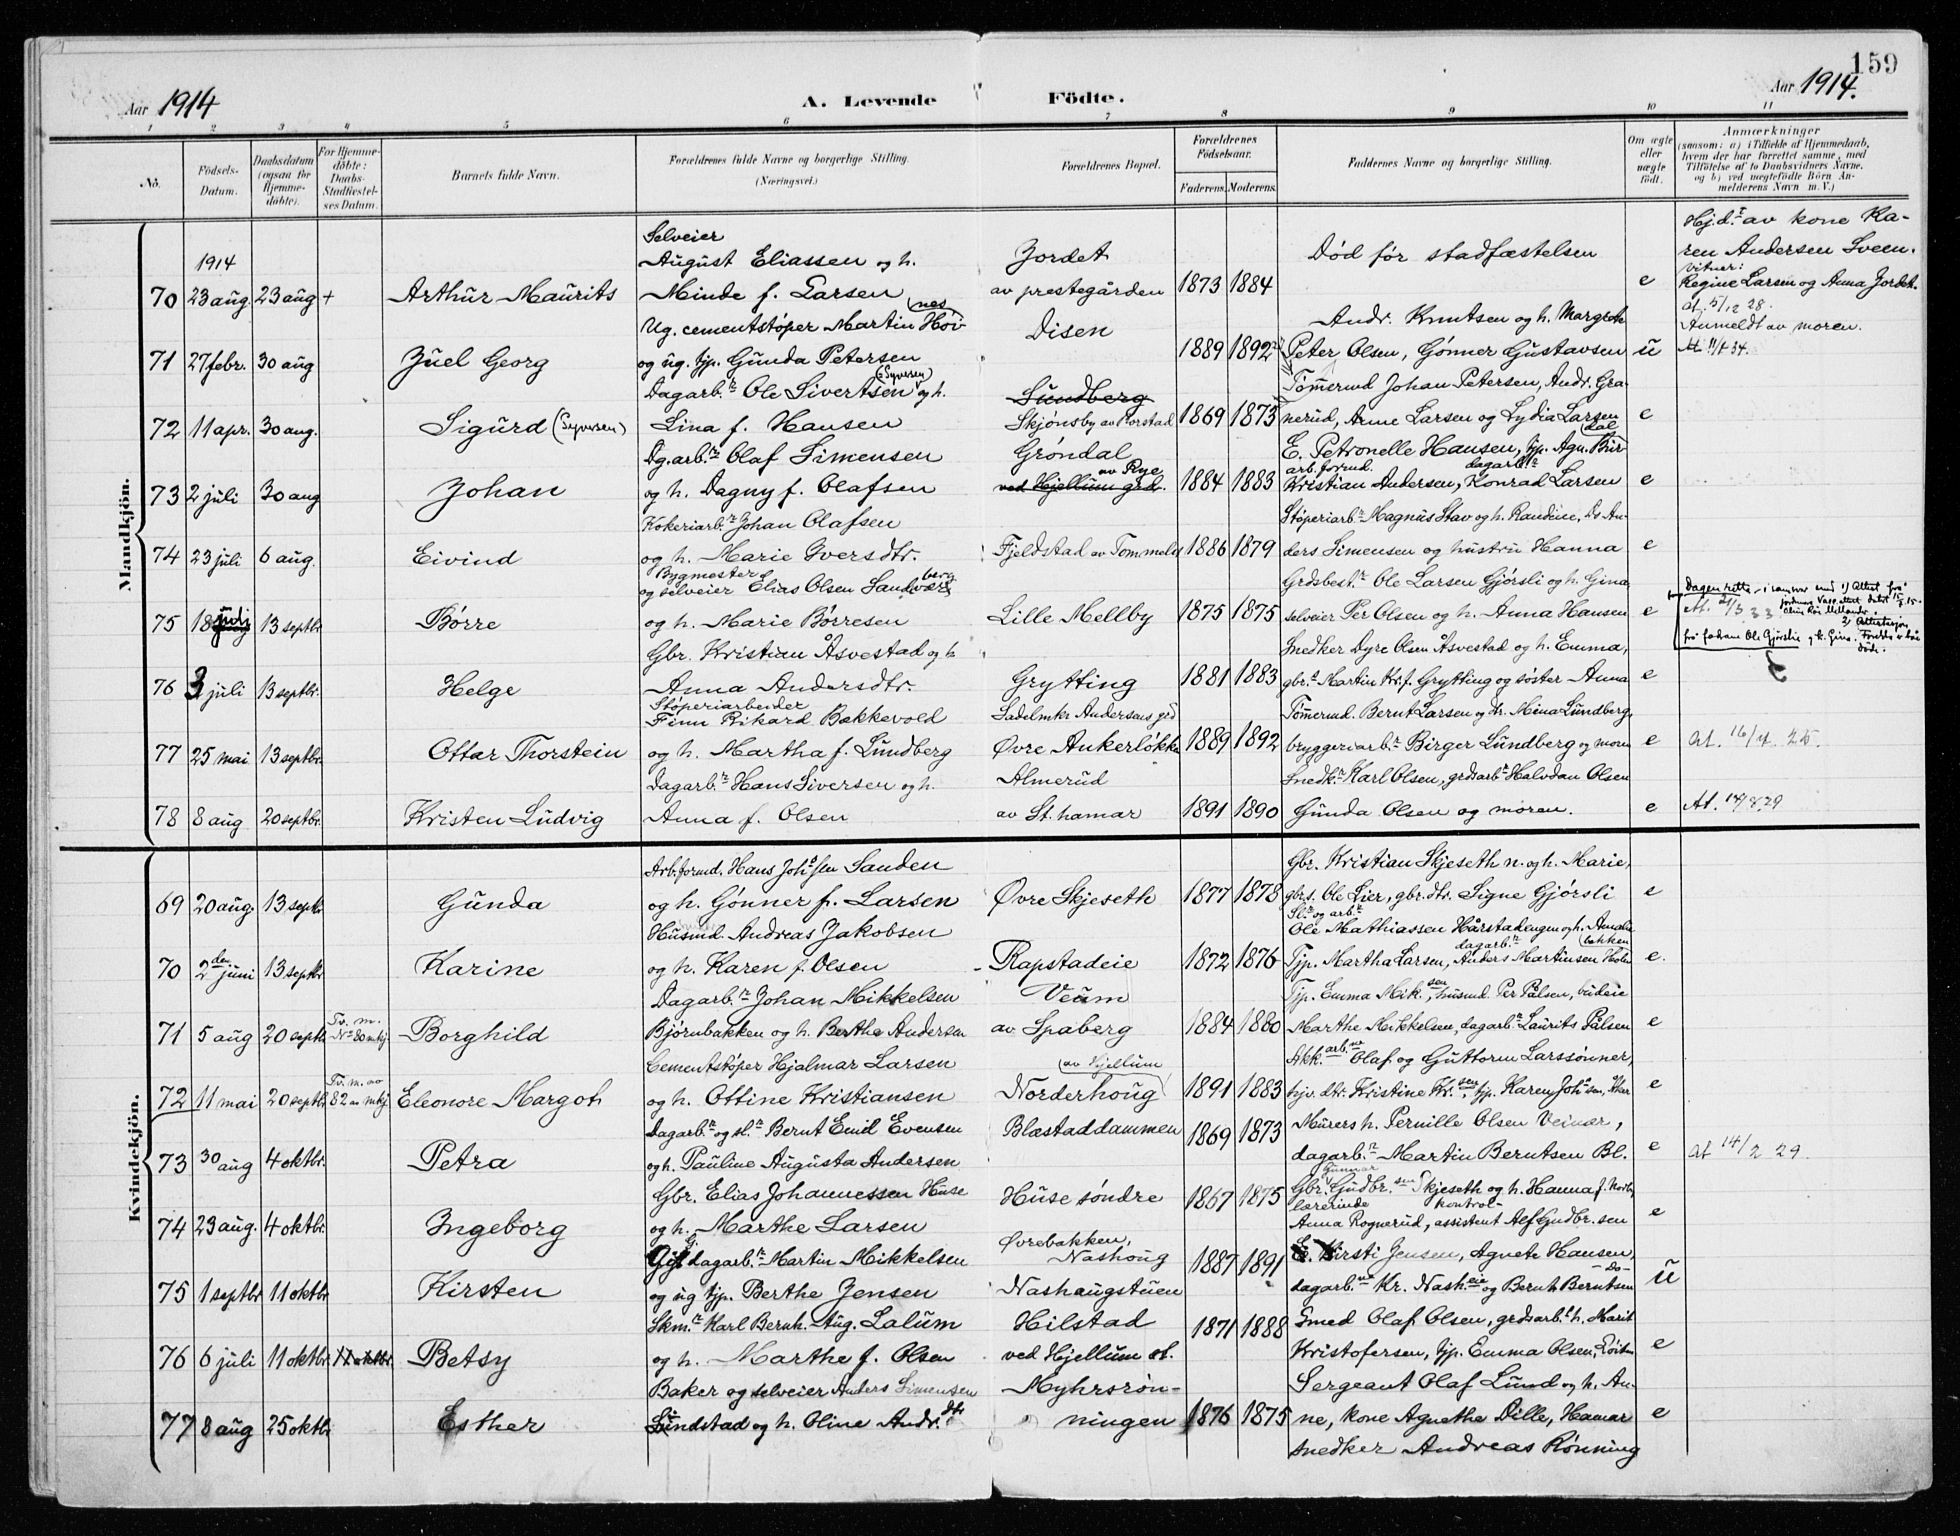 159
Aar 1914 A. Levende Födte. Aar 1914.
1 2 3 4 5 6 7 8 9 10 11
No. Födsels-Datum. Daabsdatum (ogsaa for Hjemme-döbte). For Hjemme-döbte: Daabs-Stadfæstel-ses Datum. Barnets fulde Navn. Forældrenes fulde Navne og borgerlige Stilling. (Næringsvei.) Forældrenes Bopæl. Forældrenes Födselsaar. Faderens. Moderens. Faddernes Navne og borgerlige Stilling. Om ægte eller uægte födt.
Anmærkninger
(saasom: a) i Tilfælde af Hjemmedaab,
hvem der har forrettet samme, med
Tilföielse af to Daabsvidners Navne.
og b) ved uegtefödte Börn An-
melderens Navn m. V.)
Mandkjön.
1914
70 23 aug. 23 aug + Arthur Maurits
Selveier
August Eliassen og h.
Minde f. Larsen
Jordet
av prestegården 1873 1884 Død før stadfæstelsen e
Hj.d. av kone Ka-
ren Andersen Sveen.
vitner:
Regine Larsen og Anna Jordet.
at. 5/12 28.
71 27 febr. 30 aug Juel Georg
Ug. cementstøper Martin Hov-
nes
og ug. tjp. Gunda Petersen
Disen 1889 1892
Andr. Knutsen og h. Margrete
Peter Olsen, Gønner Gustavsen u
Anmeldt av moren.
72 11 apr. 30 aug. Sigurd (Syversen)
Dagarb. Ole Sivertsen og h.
(Syversen)
Lina f. Hansen
Sundberg
Skjønsby av Korstad 1869 1873
Tømmermd Johan Petersen, Andr. Gra-
nerud, Anne Larsen og Lydia Larsen e
73 2 juli 30 aug Johan
Dg.arb. Olaf Simensen
og h. Dagny f. Olafsen
Grøndal
av Rye
ved Hjellum grd. 1884 1883
E. Petronelle Hansen, tjp. Agn. Bür-
dal
arb.formd. dagarb.
Kristian Andersen, Konrad Larsen e
74 23 juli 6 aug. Eivind
Kokeriarb. Johan Olafsen
og h. Marie Iversdtr.
Fjeldstad av Tommelst 1886 1879
Støperiarb. Magnus Stav og h. Randine, Do An-
ders Simensen og hustru Hanna e
75 18 juli 13 septbr. Børre
Bygmester
og selveier Elias Olsen Sandvær
berg
og h. Marie Børresen
Lille Mellby 1875 1875
Grdbest. Ole Larsen Gjørsli og h. Gina,
selveier Per Olsen og h. Anna Hansen e
76 3 juli 13 septbr. Helge
Gbr. Kristian Åsvestad og h
Anna Andersdtr.
Grytting 1881 1883
Snedker Dyre Olsen Åsvestad og h. Emma,
gbr. Martin Kr.f. Grytting og søster Anna e
77 25 mai 13 septbr. Ottar Thorstein
Støperiarbeider
Finn Rikard Bakkevold
og h. Martha f. Lundberg
Sadelmkr Andersens grd
Øvre Ankerløkke 1889 1892
Tømmermd. Bernt Larsen og Hr. Mina Lundberg,
bryggeriarb. Birger Lundberg og moren e
at. 16/4. 25.
78 8 aug 20 septbr. Kristen Ludvig
Dagarb. Hans Siversen og h.
Anna f. Olsen
Almerud
av St. hamar 1891 1890
Snedk. Karl Olsen, grdsarb. Halvdan Olsen
Gunda Olsen og moren. e
At. 14/8 29
Kvindekjön.
69 20 aug. 13 septbr. Gunda
Arb.formd. Hans Johs.sen Sanden
og h. Gønner f. Larsen
Øvre Skjeseth 1877 1878
Gbr. Kristian Skjeseth n. og h. Marie,
gbrs. Ole Lier, gbr.dtr. Signe Gjørsli e
70 2den juni 13 septbr. Karine
Husmd. Andreas Jakobsen
og h. Karen f. Olsen
Rapstadeie 1872 1876
Sl. og arb.
Ole Mathiassen Hårstadengen og h. Amalie
Tjp. Martha Larsen, Anders Martinsen Holm
dagarb. bakken
e.
71 5 aug 20 septbr Tv. m. No 80 mkj. Borghild
Dagarb. Johan Mikkelsen
Bjørnbakken og h. Berthe Andersen
Veum
av Spaberg 1884 1880
Tjp. Emma Mik.sen, husmd. Per Pålsen, budeie
Marthe Mikkelsen, dagarb. Laurits Pålsen e
72 11 mai 20 septbr. Tv. m. no 82 av mkj. Eleonore Margoth
Cementstøper Hjalmar Larsen
og h. Ottine Kristiansen
av Hjellum
Norderhoug 1891 1883
Akk.arb. Olaf og Guttorm Larssønner,
hjv. dtr. Kristine Kr.sen, tjp. Karen Johs.sen, Uker e
73 30 aug 4 oktbr. Petra
Dagarb. og sl. Bernt Emil Evensen
og h. Pauline Augusta Andersen
Blæstaddammen 1869 1873
Murers h. Pernille Olsen Veinar,
dagarb. Martin Berntsen Bl. e
at 14/2 29.
74 23 aug. 4 oktbr. Ingeborg
Gbr. Elias Johannessen Huse
og h. Marthe Larsen
Huse søndre 1867 1875
Gunnar
Gbr. Gudbr.sen Skjeseth og h. Hanna f. Norb.
lærerinde kontrol-
Anna Rognerud, assistent Alf Gudbr.sen e
75 1 septbr 11 oktbr. Kirsten
Gift dagarb. Martin Mikkelsen
og ug tjp. Berthe Jensen
Øvrebakken,
Nashoug
Nashaugstuen 1887 1891
Kirsti Jensen, Agnete Hansen,
dagarb. Kr. Nash.eie og Bernh. Berntsen
- Do -
u
76 6 juli 11 oktbr. 11 oktbr. Betsy
Skm. Karl Bernh. Aug. Lalum
og h. Marthe f. Olsen
Hilstad
ved Hjellum st. 1871 1888
Smed Olaf Olsen, grdsarb. h. Marit
Kristofersen, tjp. Emma Olsen, e
77 8 aug 25 oktbr Esther
Baker og selveier Anders Simensen
Lundstad og h. Oline Andr.dtr
Myhrsrøn-
ningen 1876 1875
Sergeant Olaf Lund og h. An-
ne, kone Agnethe Dille, Hamar e
snedker Andreas Rønning